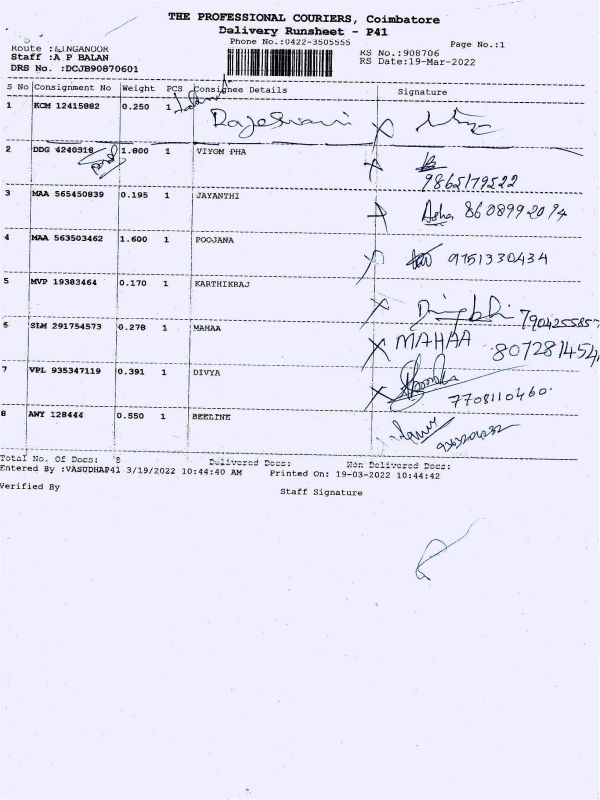 THE PROFESSIONAL COURIERS, Coimbatore
Delivery Runsheet - P41
Phone No.:0422-3505555 Page No.:1
Route :SINGANOOR RS No.:908706
Staff :A P BALAN RS Date:19-Mar-2022
DRS No. :DCJB90870601
S No Consignment No Weight PCS Consignee Details Signature
1 KCM 12415882 0.250 1 Rajeswari
2 DDG 4240318 1.800 1 VIYOM PHA
9865179522
3 MAA 565450839 0.195 1 JAYANTHI Asha 8608992094
4 MAA 563503462 1.600 1 POOJANA 9751330434
5 MVP 19383464 0.170 1 KARTHIKRAJ 7904255857
6 SLM 291754573 0.278 1 MAHAA MAHAA 8072814541
7 VPL 935347119 0.391 1 DIVYA
7708110460.
8 AWY 128444 0.550 1 BEELINE
Total No. Of Docs: 8 Delivered Docs: Non Delivered Docs:
Entered By :VASUDHAP41 3/19/2022 10:44:40 AM Printed On: 19-03-2022 10:44:42
Verified By Staff Signature